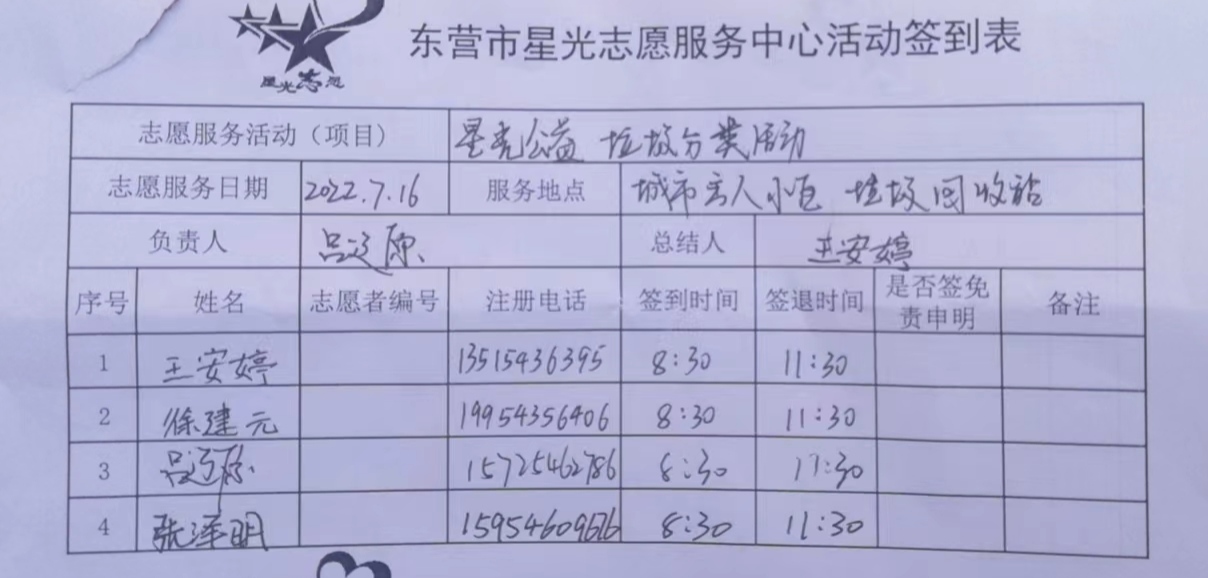 东营市星光志愿服务中心活动签到表
星光志愿
志愿服务活动（项目） 星光公益 垃圾分类活动
志愿服务日期 2022.7.16 服务地点 城市主人小区 垃圾回收站
负责人 吕 原 总结人 王安婷
序号 姓名 志愿者编号 注册电话 签到时间 签退时间 是否签免责申明 备注
1 王安婷 13515436395 8:30 11:30
2 徐建元 19954356406 8:30 11:30
3 吕 原 15725462786 8:30 11:30
4 张泽明 8:30 11:30